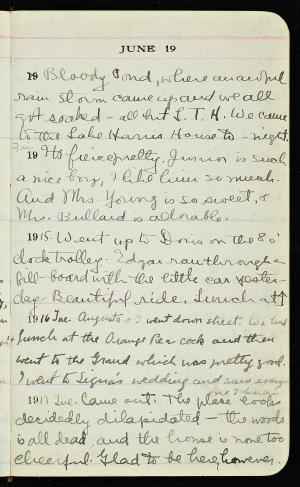 JUNE 19
19 Bloody Pond, where an awful
rain storm came up and we all
got soaked - all but L. T. H. We came
to the Lake Harris House to-night.
19 fierce pretty. Junior is such
a nice boy, I like him so much.
And Mrs. Young is so sweet, &
Mrs. Bullard is adorable.
1915. Went up to Doris on the 8 o'
clock trolley. Edgar ran through a
bill-board with the little car yester-
day. Beautiful ride. Lunch at
1916 Tue. Augusta & I went down street. We had
lunch at the Orange Peacock and then
went to the Grand which was pretty good.
I went to Signa's wedding and saw every
one I knew.
1917 Tue. Came out. The place looks
decidedly dilapidated - the woods
is all dead, and the house is none too
cheerful. Glad to be here, however.